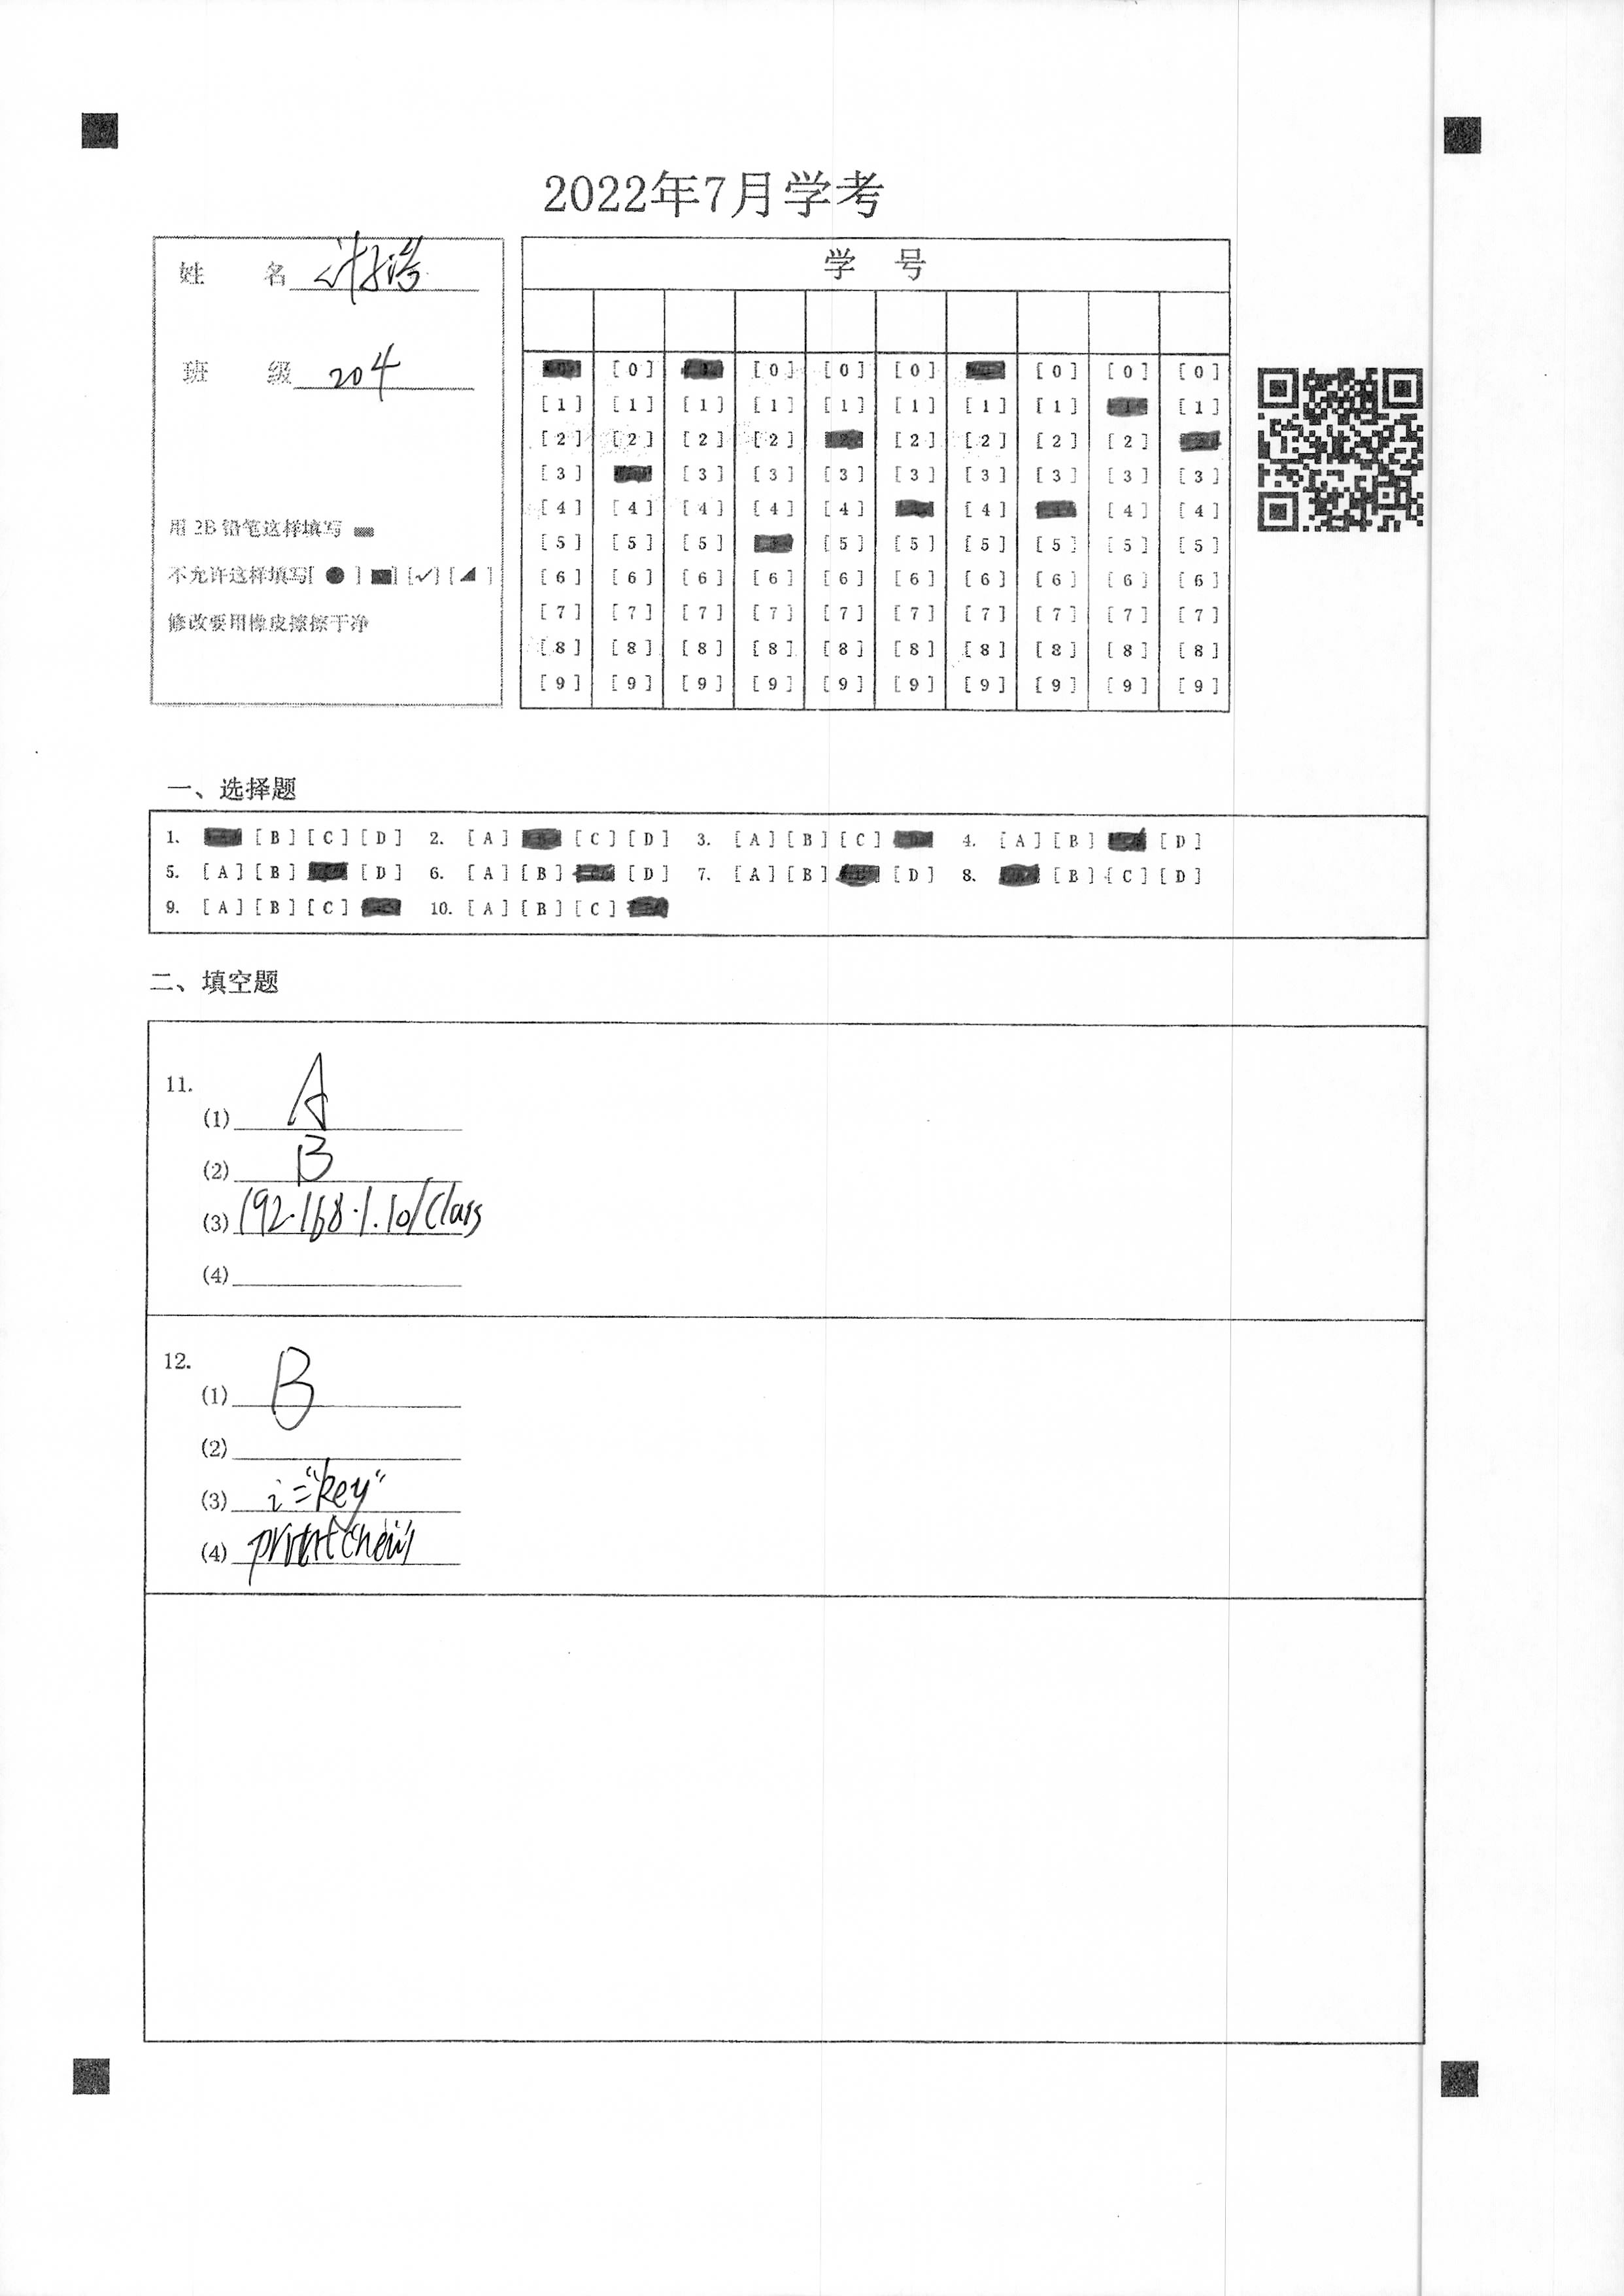 2022年7月学考
姓 名
班 级 204
用 2B 铅笔这样填写
不允许这样填写[ ● ] [■] [✓] [◢ ]
修改要用橡皮擦擦干净
学 号
[0] [0] [0] [0] [0] [0] [0]
[1] [1] [1] [1] [1] [1] [1] [1] [1]
[2] [2] [2] [2] [2] [2] [2] [2]
[3] [3] [3] [3] [3] [3] [3] [3] [3]
[4] [4] [4] [4] [4] [4] [4] [4]
[5] [5] [5] [5] [5] [5] [5] [5] [5]
[6] [6] [6] [6] [6] [6] [6] [6] [6] [6]
[7] [7] [7] [7] [7] [7] [7] [7] [7] [7]
[8] [8] [8] [8] [8] [8] [8] [8] [8] [8]
[9] [9] [9] [9] [9] [9] [9] [9] [9] [9]
一、选择题
1. [B] [C] [D] 2. [A] [C] [D] 3. [A] [B] [C] 4. [A] [B] [D]
5. [A] [B] [D] 6. [A] [B] [D] 7. [A] [B] [D] 8. [B] [C] [D]
9. [A] [B] [C] 10. [A] [B] [C]
二、填空题
11.
(1) A
(2) B
(3) 192.168.1.10/Class
(4)
12.
(1) B
(2)
(3) i="key"
(4)